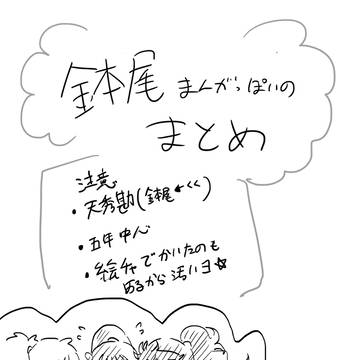 鉢尾 まんがっぽいの
まとめ
注意
・天秀勘(鉢尾←くく)
・五年中心
・絵チャでかいたのも
あるから汚いヨ☆